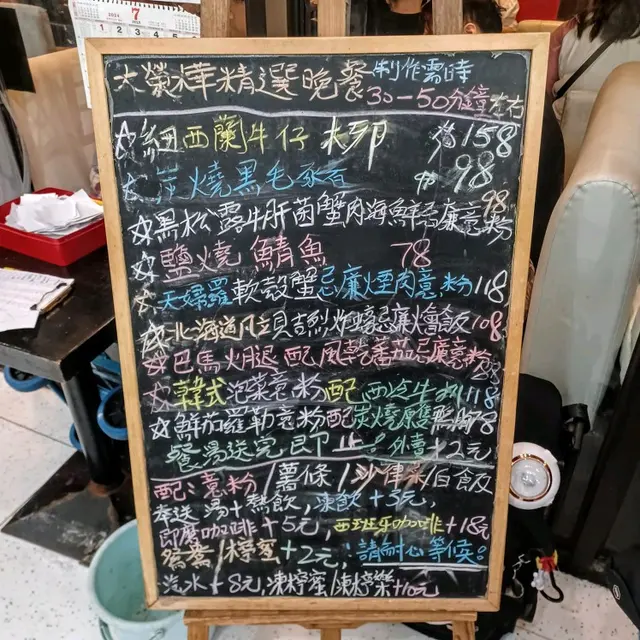 7
大榮華精選晚餐 制作需時
30-50分鐘左右
☆紐西蘭牛仔 158
炭燒黑毛豕 98
98
☆黑松露牛肝菌蟹肉海鮮忌廉意粉
☆鹽燒鯖魚 78
☆天婦羅軟殼蟹忌廉煙肉意粉118
☆北海道凡立貝吉列炸蠔忌廉燴飯108
☆巴馬火腿配風乾蕃茄忌廉意粉
☆韓式泡菜意粉配西冷牛扒118
☆鮮茄羅勒意粉配炭燒原雙鴨胸78
餐湯送完即止!外賣+2元
配:意粉/薯條/沙律菜/白飯
奉送 湯+熱飲,凍飲+3元,
即磨咖啡+5元,西班牙咖啡+18元
鴛鴦/檸蜜+2元,!請耐心等候!
汽水+8元,凍檸蜜/凍檸樂+10元